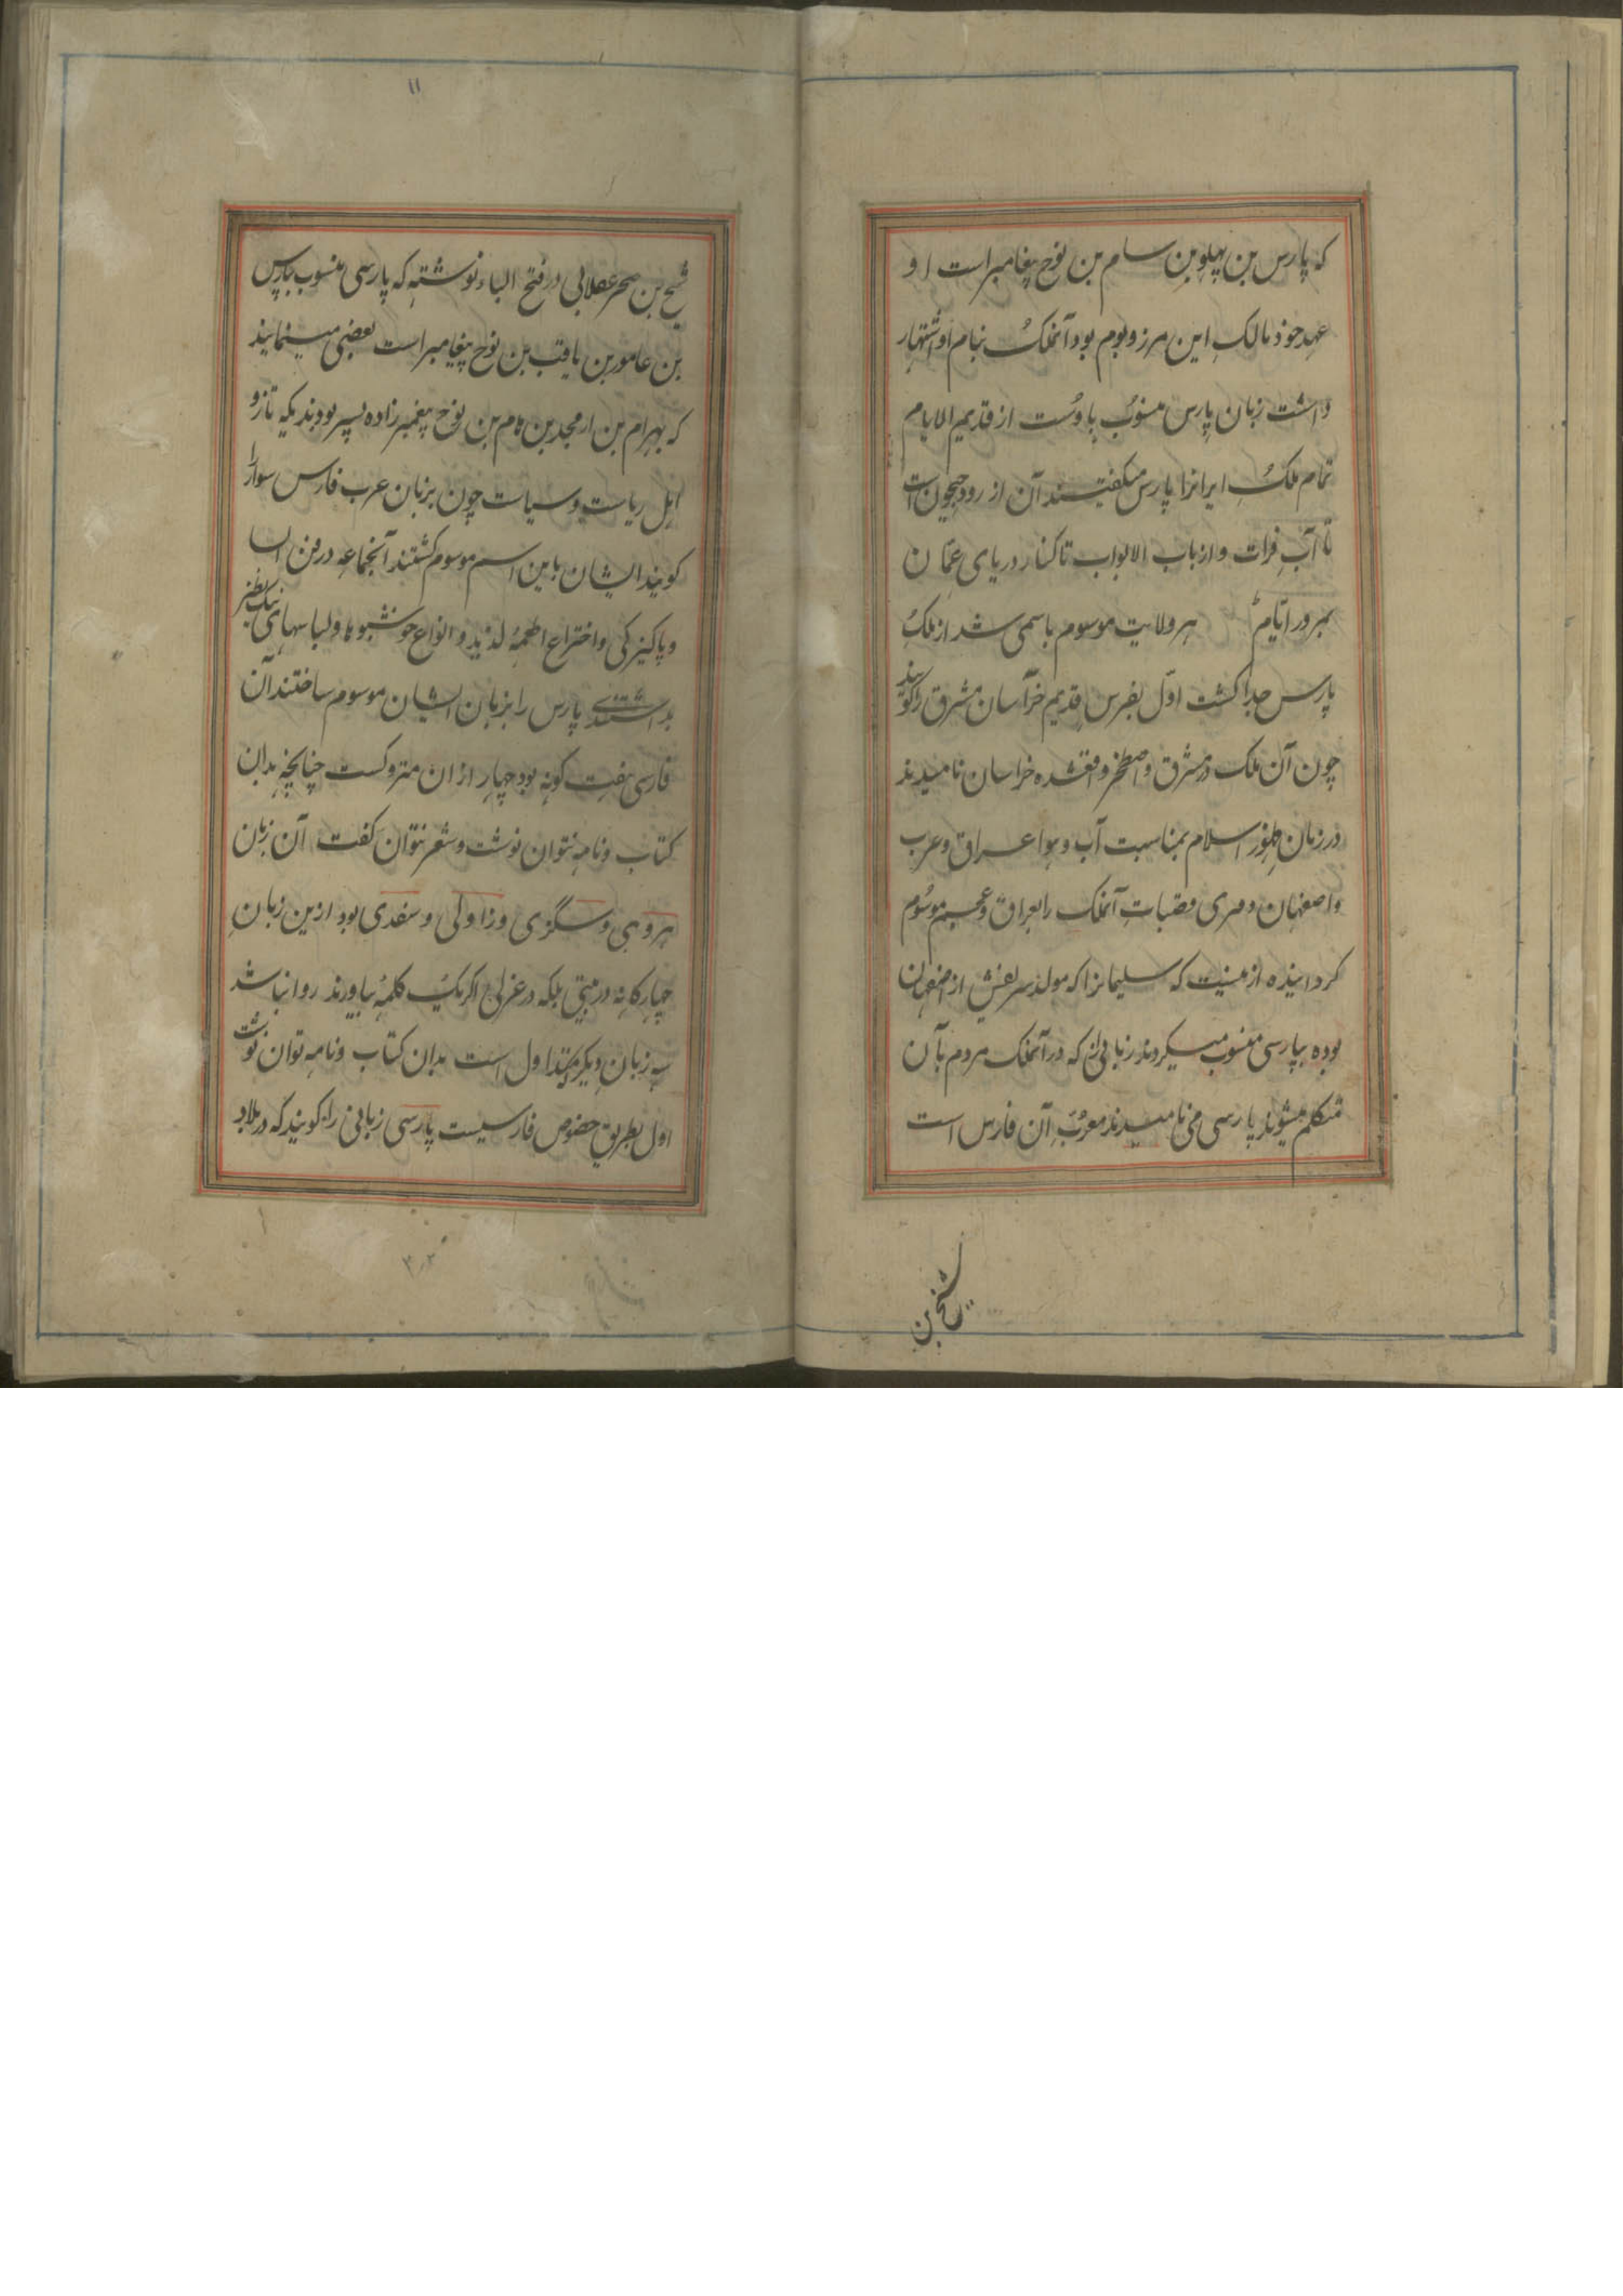 که پارس بن پهلو بن سام بن نوح پیغامبر است او
عهد خود مالک این مرز و بوم بود آنملک بنام او اشتهار
داشت زبان پارس منسوب باوست از قدیم الایام
تمام ملک ایرانرا پارس میگفتند آن از رود جیحون است
تا آب فرات و از باب الابواب تا کنار دریای عمّان
بمرور ایّام هر ولایت موسوم باسمی شد از ملک
پارس جدا کشت اوّل بفرس قدیم خراسان مشرق را کویند
چون آن ملک در مشرق و اصطخر واقعشده خراسان نامیدند
در زمان ظهور اسلام بمناسبت آب و هوا عراق و عرب
و اصفهان و قصبات آنملک را بعراق و عجم موسوم
کردانیده از که سلیمانرا که مولد شریفش از اصفهان
بوده بپارسی منسوب میکردند زبانی که در آنملک مردم بآن
متکلم میشوند پارسی می نامیدند معرّب آن فارس است
شیخ بن
۱۱
شیخ بن در فتح الباء نوشته که پارسی منسوب بپارس
بن عامور بن یافت بن نوح پیغامبر است بعضی مینمایند
که بهرام بن ارمجد بن هام بن نوح پیغمبر زاده پسر بودند یکه تاز و
اهل ریاست و سیاست چون بزبان عرب فارس سوار را
کویند ایشان باین اسم موسوم کشتند آنجماعه در فن
و پاکیزکی و اختراع اطعمهٔ لذیذ و انواع خوشبوها و لباسهای نیک
بداشتندی پارس را بزبان ایشان موسوم ساختند آن
فارسی هفت کونه بود چهار از ان متروکست چنانچه بدان
کتاب و نامه نتوان نوشت و شعر نتوان کفت آن زبان
هروی و سگزی و زاولی و سغدی بود ازین زبان
چهارکانه در بیتی بلکه در غزلی اکر یک کلمهٔ بیاورند روا نباشد
سه زبان دیکر متداول است بدان کتاب و نامه توان نوشت
اول بطریق خصوص فارسیست پارسی زبانی را کویند که در بلاد